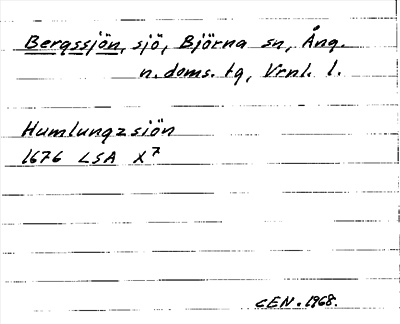 Bergssjön, sjö, Björna sn, Ång.
n. doms. tg, Vrnl. l.
Humlungzsiön
1676 LSA X7
CEN. 1968.